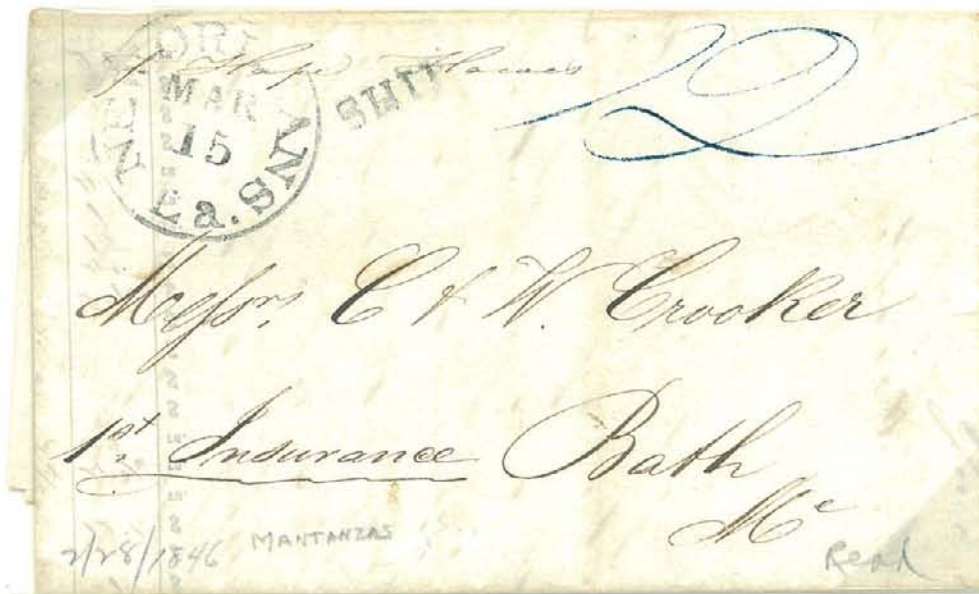 NEW ORLEANS La.
MAR
15
SHIP
12
Messrs. C & W. Crooker
1st. Insurance Bath
Me
2/28/1846 MANTANZAS
Read